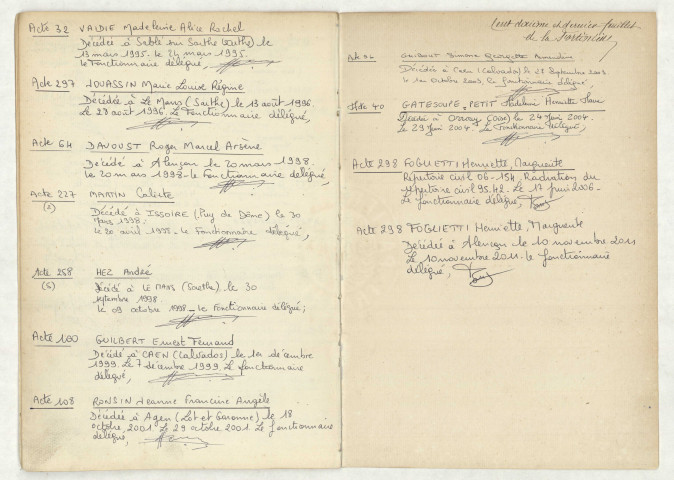 Acte 32 VALDIE Madeleine Alice Rachel
Décédée à Sablé sur Sarthe (Sarthe) le
13 mars 1995. le 24 mars 1995.
Le Fonctionnaire délégué,
Acte 297 JOUASSIN Marie Louise Régine
Décédée à Le Mans (Sarthe) le 13 août 1996.
Le 28 août 1996. Le Fonctionnaire délégué,
Acte 64 DAVOUST Roger Marcel Arsène
Décédé à Alençon le 20 mars 1998.
Le 20 mars 1998 - le Fonctionnaire délégué
Acte 227 MARTIN Calixte
(2) Décédé à ISSOIRE (Puy de Dôme) le 30
Mars 1998.
Le 20 avril 1998 - Le Fonctionnaire délégué,
Acte 258 HEZ André
(5) Décédé à LE MANS (Sarthe) le 30
septembre 1998
le 09 octobre 1998 - le Fonctionnaire délégué;
Acte 180 GUILBERT Ernest Fernand
Décédé à CAEN (Calvados) le 1er décembre
1999. Le 7 décembre 1999. Le fonctionnaire
délégué,
Acte 108 RONSIN Jeanne Francine Angèle
Décédée à Agen (Lot et Garonne) le 18
octobre 2001. Le 29 octobre 2001. Le fonctionnaire
délégué,
Cent dixième et dernier feuillet
Acte GUIBOUT Simone Georgette
Décédée à CAEN (Calvados) le 23 Septembre 2003
1er Octobre 2003, le fonctionnaire délégué,
Acte 40 GATESOUPE, PETIT Henriette
Décédé à (Oise) le 24 Juin 2004.
Le 29 Juin 2004. Le Fonctionnaire délégué,
Acte 298 FOGLIETTI Henriette, Marguerite
Répertoire civil 06-154. Radiation du
répertoire civil 95.42. Le 12 juin 2006.
Le fonctionnaire délégué,
Acte 298 FOGLIETTI Henriette, Marguerite
Décédée à Alençon le 10 novembre 2011
Le 10 novembre 2011. le fonctionnaire
délégué,